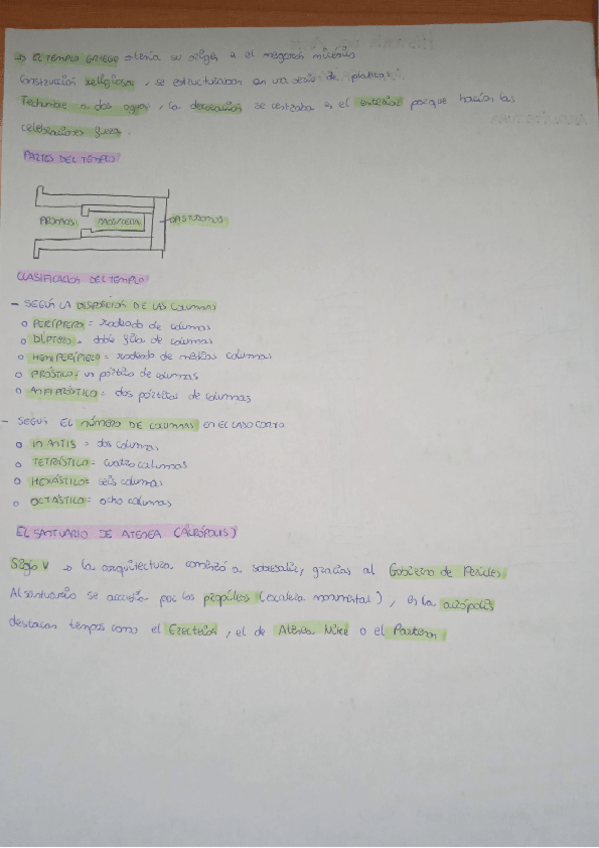 EL TEMPLO GRIEGO → tenía su origen en el megarón micénico
Construcción religiosa, se estructuraban en una serie de plantas.
Techumbre a dos aguas, la decoración se centraba en el exterior porque hacían las
celebraciones fuera.
PARTES DEL TEMPLO
PRONAOS NAOS OPISTODOMOS
CLASIFICACIÓN DEL TEMPLO
- SEGÚN LA DISPOSICIÓN DE LAS COLUMNAS
o PERÍPTERO = rodeado de columnas
o DÍPTERO = doble fila de columnas
o HEMIPERÍPTERO = rodeado de medias columnas
o PRÓSTILO: un pórtico de columnas
o ANFIPRÓSTILO = dos pórticos de columnas
- SEGÚN EL NÚMERO DE COLUMNAS EN EL LADO CORTO
o IN ANTIS = dos columnas
o TETRÁSTILO = cuatro columnas
o HEXÁSTILO = seis columnas
o OCTÁSTILO = ocho columnas
EL SANTUARIO DE ATENEA (ACRÓPOLIS)
Siglo V → la arquitectura comenzó a sobresalir, gracias al Gobierno de Pericles.
Al santuario se accedía por los propileos (escalera monumental), en la acrópolis
destacan templos como el Erecteion, el de Atenea Niké o el Partenón.